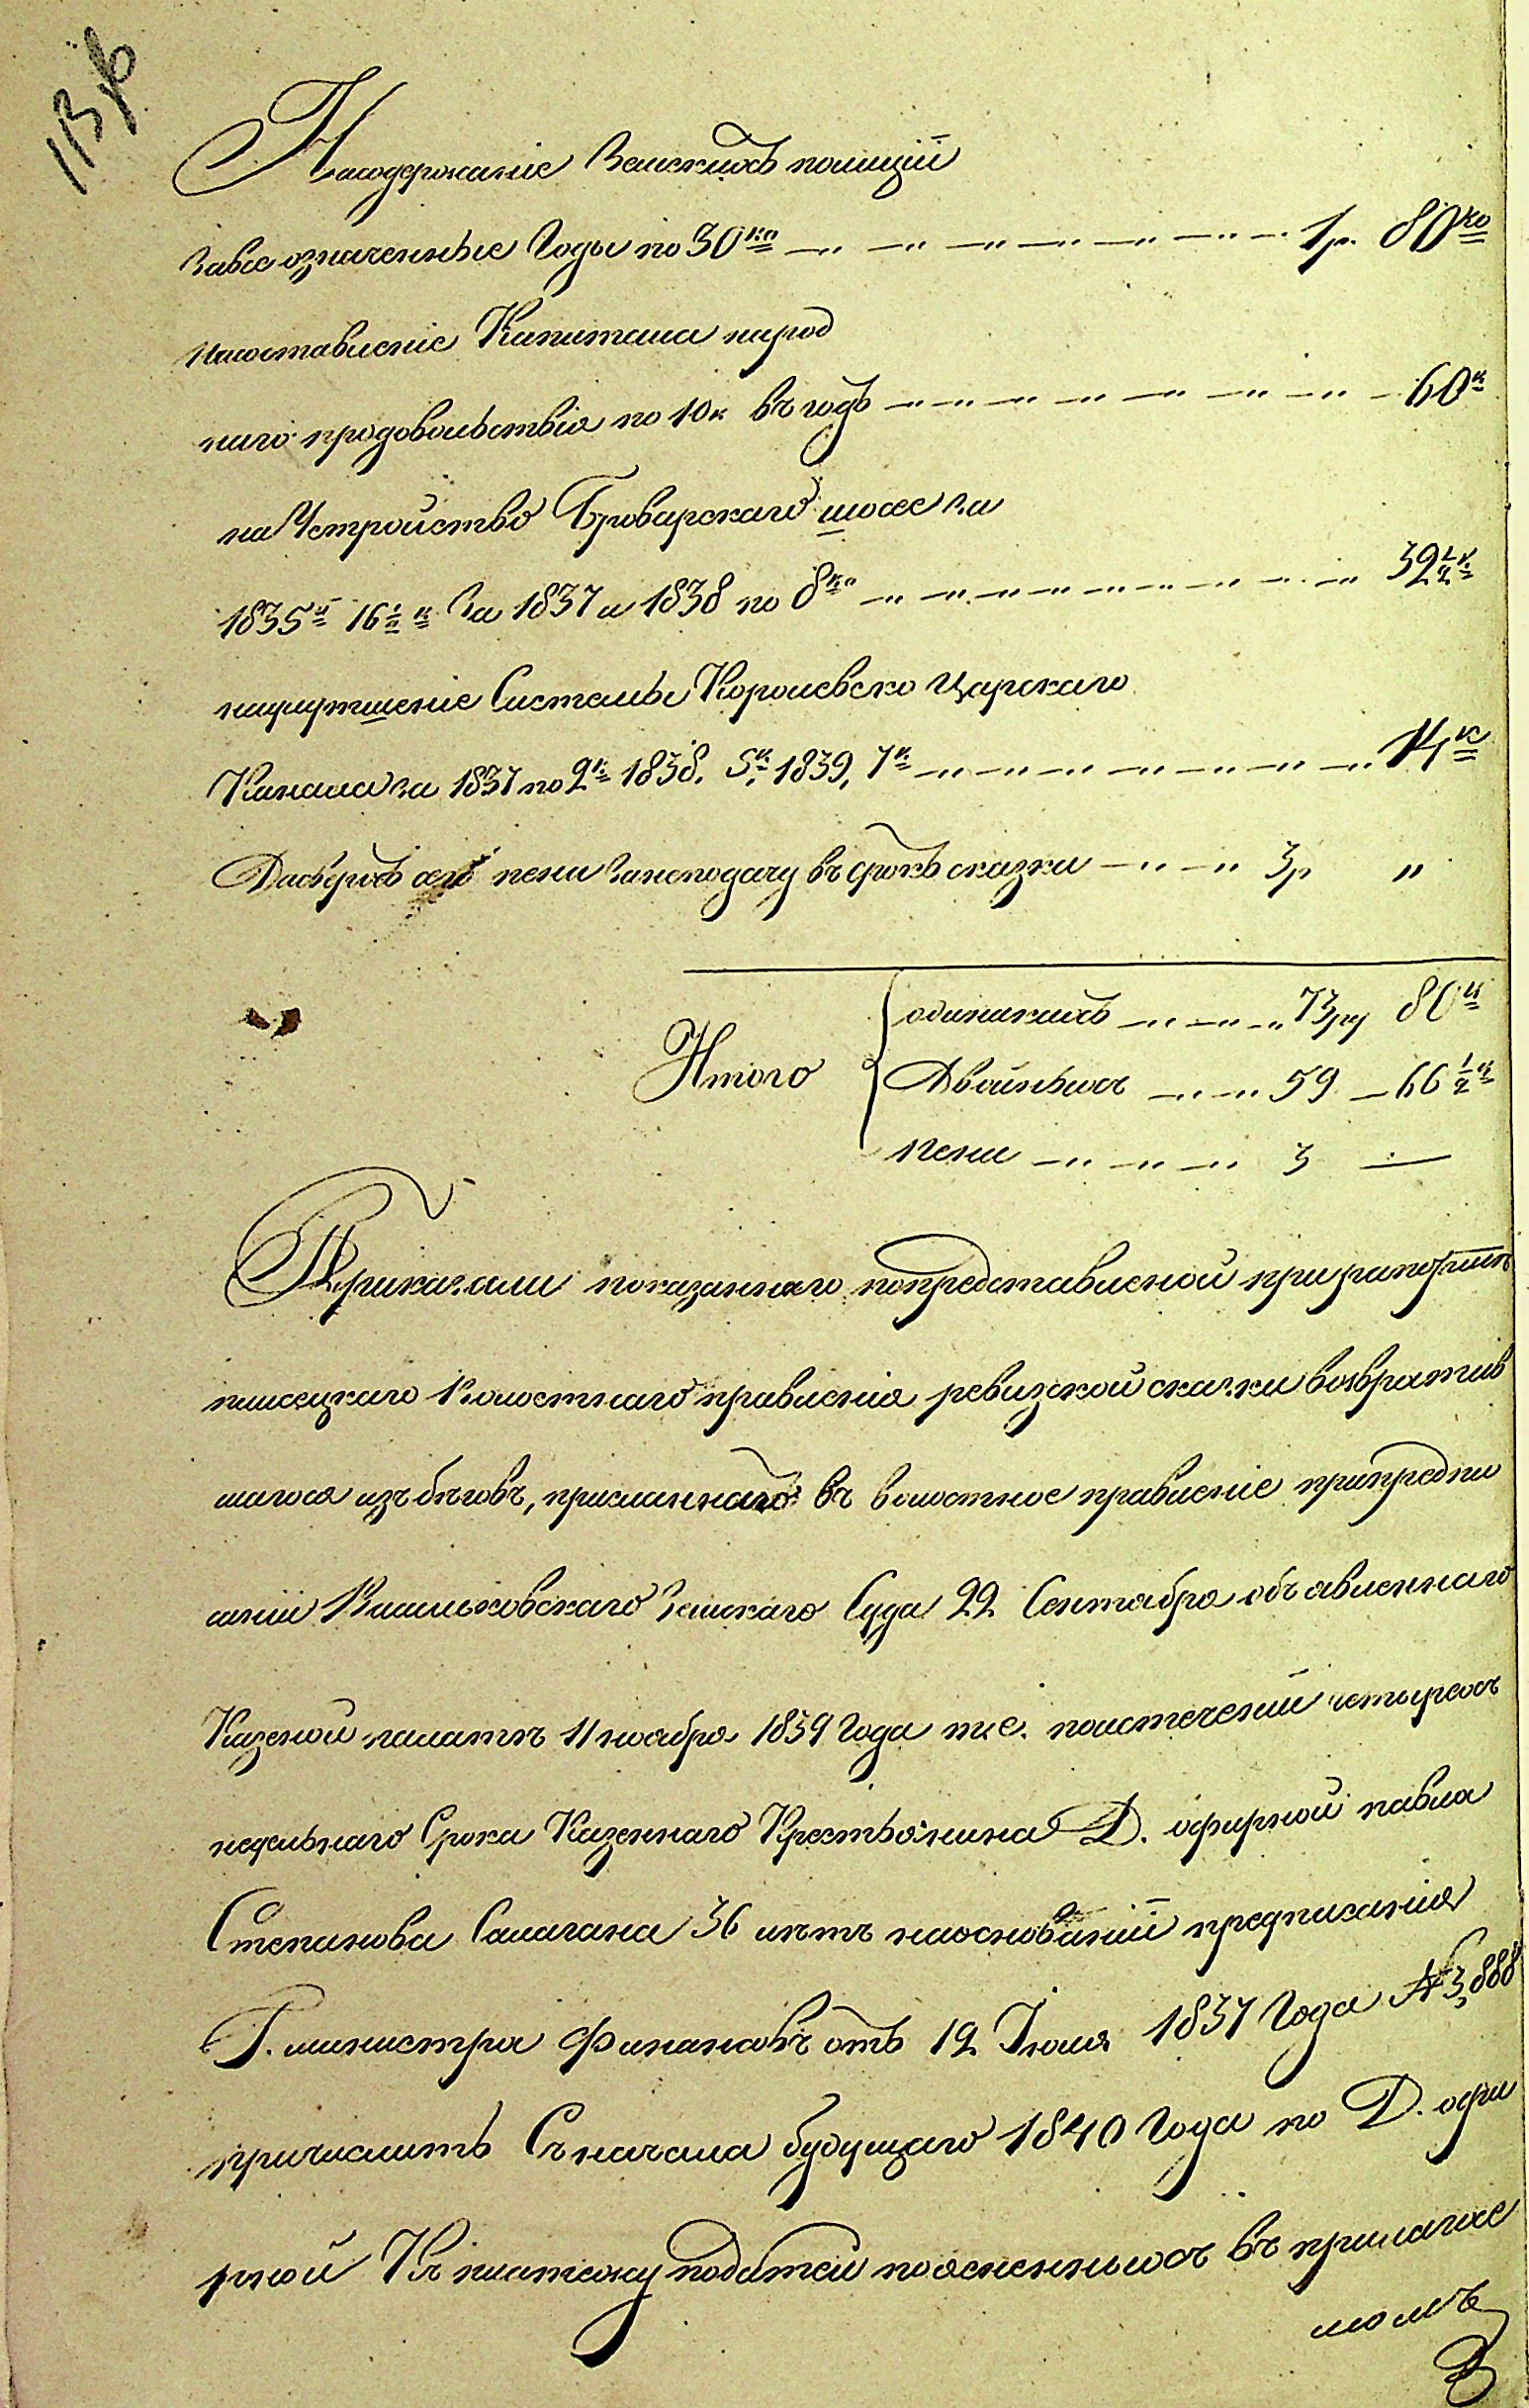 На содержаніе Земскихъ полицій
за все означенные Годы по 30 ко 1 р. 80 ко
на составленіе Капитала народ
наго продовольствія по 10 к въ годъ 60 к
на Устройство Броварскаго шосее за
1835 й 16 1/2 к За 1837 и 1838 по 8 ко 32 1/2 к
на улутшеніе Системы Королевско Царскаго
Канала за 1837 по 2 к 1838. 5 к 1839, 7 к 14 к
пени за неподачу въ срокъ сказки 3 р "
одинакихъ 73 ру 80 к
Итого Двойныхъ 59 66 1/2 к
пени 3 —
Приказали показаннаго по представленой при рапортъ
волостнаго правленія ревизской сказки возвратив
шагося изъ бѣговъ, присланнаго въ волостное правленіе при предпи
саніи Васильковскаго Земскаго Суда 22 Сентября объявленнаго
Казеной палатѣ 11 ноября 1839 Года т: е. по истеченіи четырехъ
недельнаго Срока Казеннаго Крестьянина Д. офирной павла
Степанова Салагана 36 лѣтъ на основаніи предписанія
Г. министра Финансовъ отъ 12 Іюля 1837 Года № 3,888
причислить Съ начала будущаго 1840 Года по Д. офи
рной Къ платежу податей поясненныхъ въ прилагае
момъ